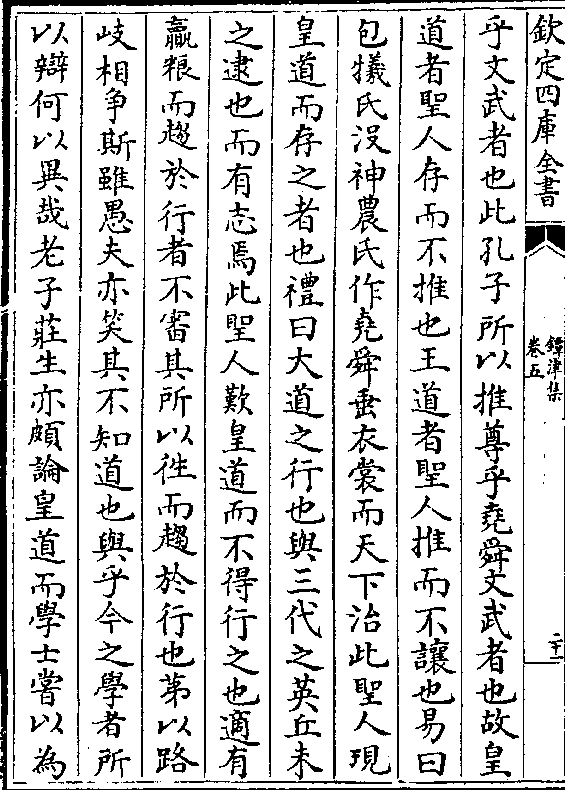 欽定四庫全書
鐔津集
卷五
二十一
乎文武者也此孔子所以推尊乎堯舜文武者也故皇
道者聖人存而不推也王道者聖人推而不讓也易曰
包犧氏沒神農氏作堯舜垂衣裳而天下治此聖人現
皇道而存之者也禮曰大道之行也與三代之英丘未
之逮也而有志焉此聖人歎皇道而不得行之也適有
贏粮而趨於行者不審其所以徃而趨於行也第以路
岐相争斯雖愚夫亦笑其不知道也與乎今之學者所
以辯何以異哉老子莊生亦頗論皇道而學士嘗以為